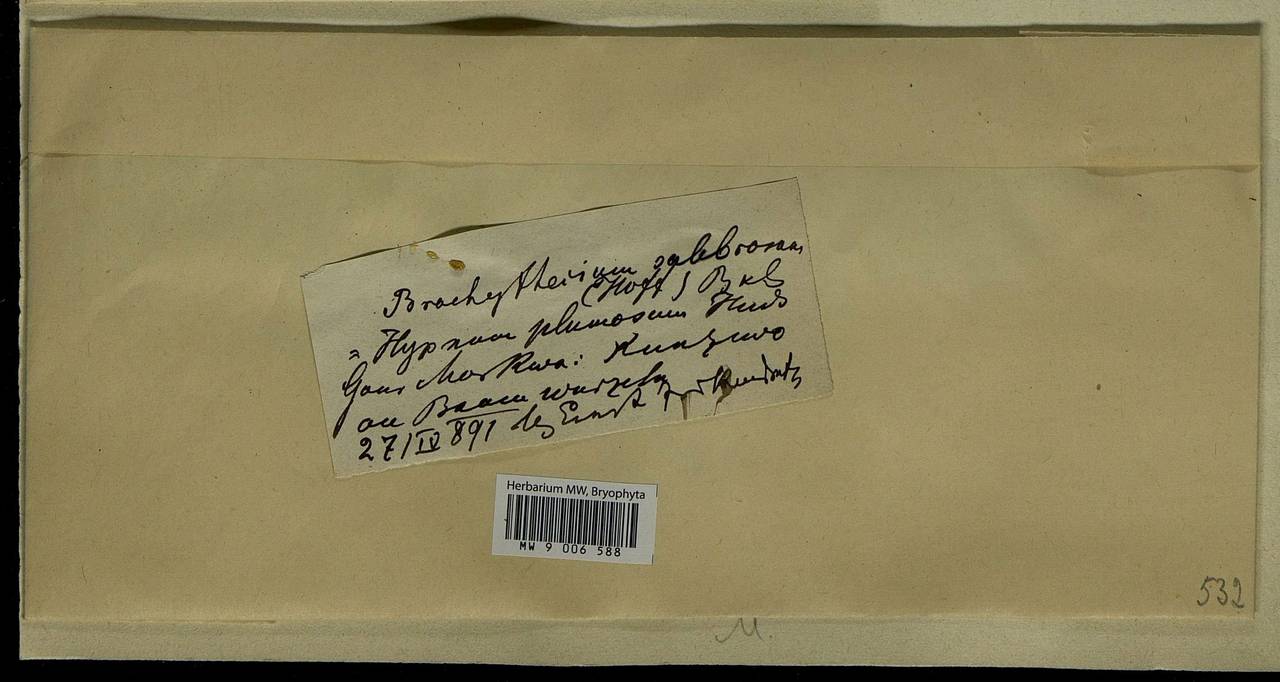 Brachythecium salebrosum
(Hoff) B
= Hypnum plumosum Huds
Gouv Moskwa: Kunzewo
an Baum wurzeln
27/IV 891 leg Ernst
Herbarium MW, Bryophyta
MW 9 006 588
532
M.